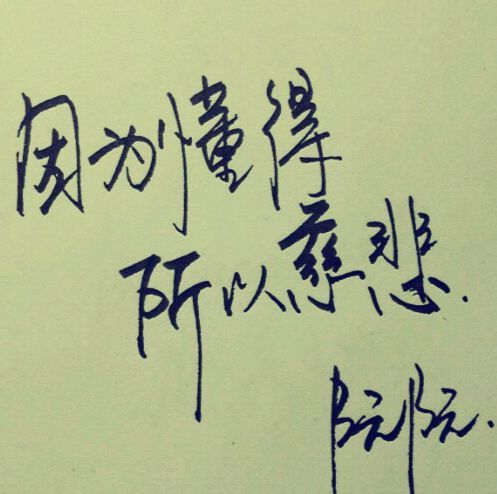 因为懂得
所以慈悲.
阮阮.